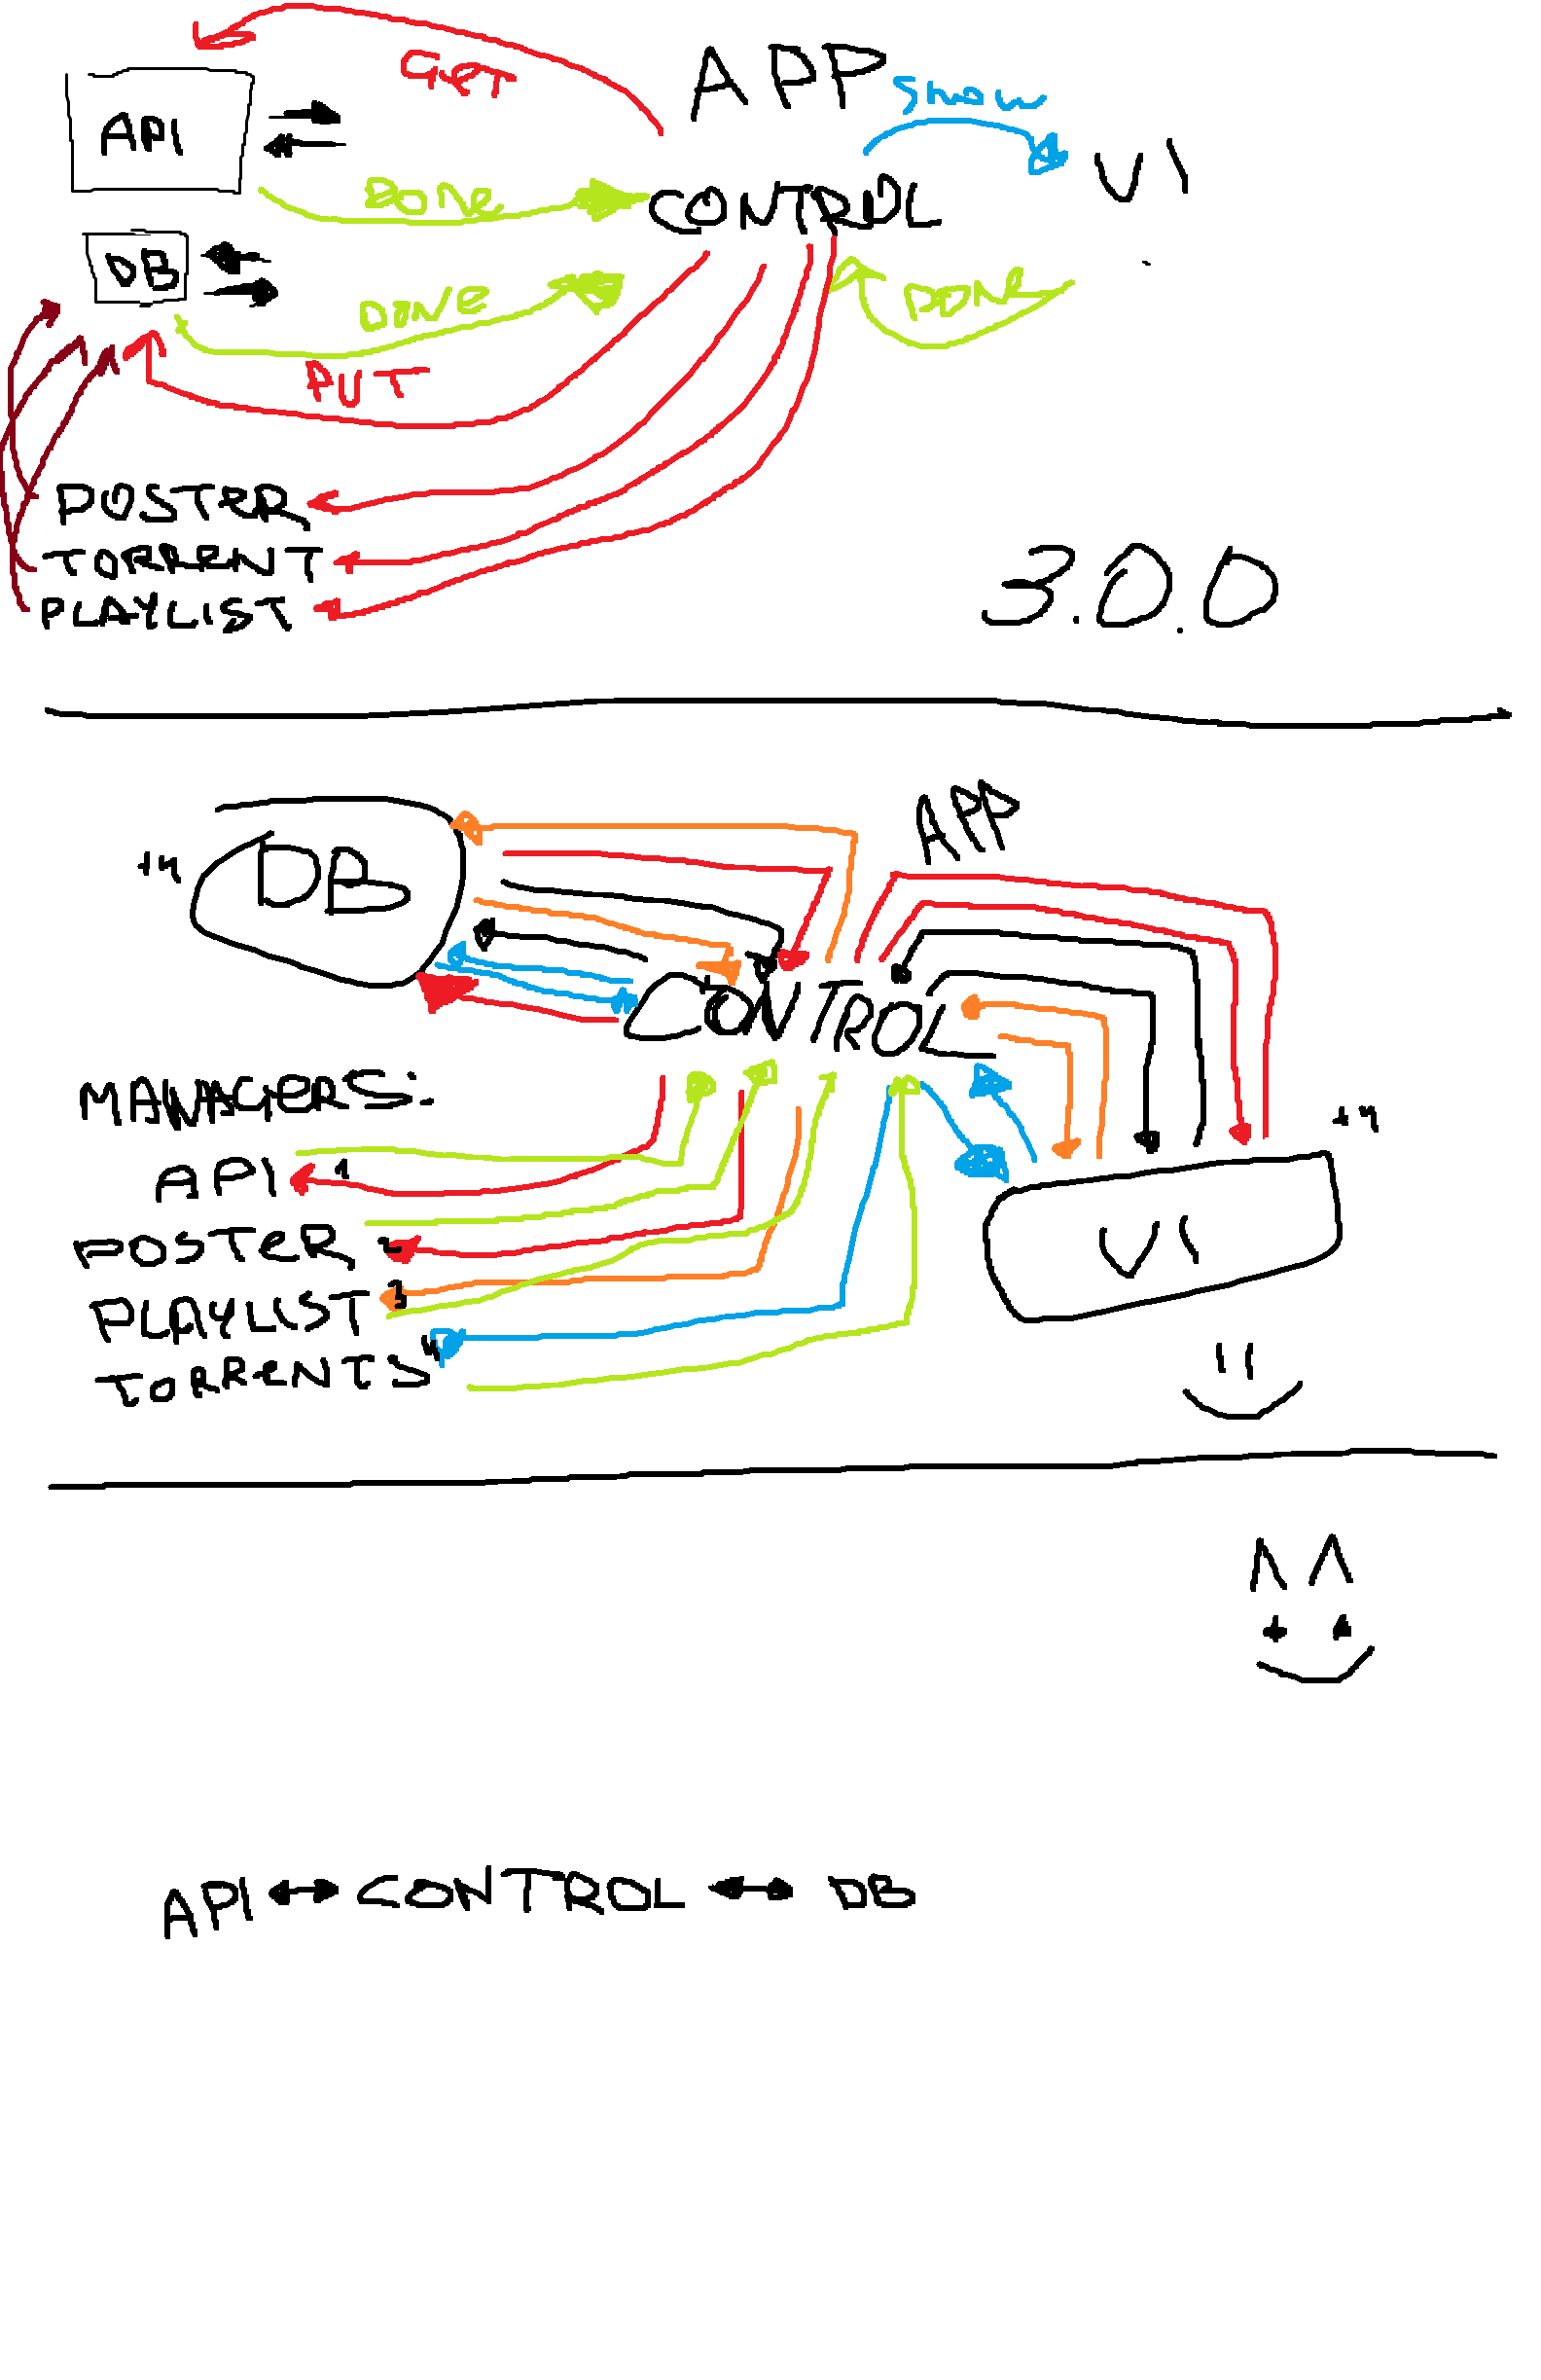 GET
APP
SHOW
API
UI
DONE
CONTROL
DB
DONE
DONE
PUT
POSTER
TORRENT
PLAYLIST
3.0.0
APP
+4
DB
CONTROL
MANAGERS:
+4
API 1
POSTER 2
UI
PLAYLIST 3
TORRENTS 4
API ↔ CONTROL ↔ DB